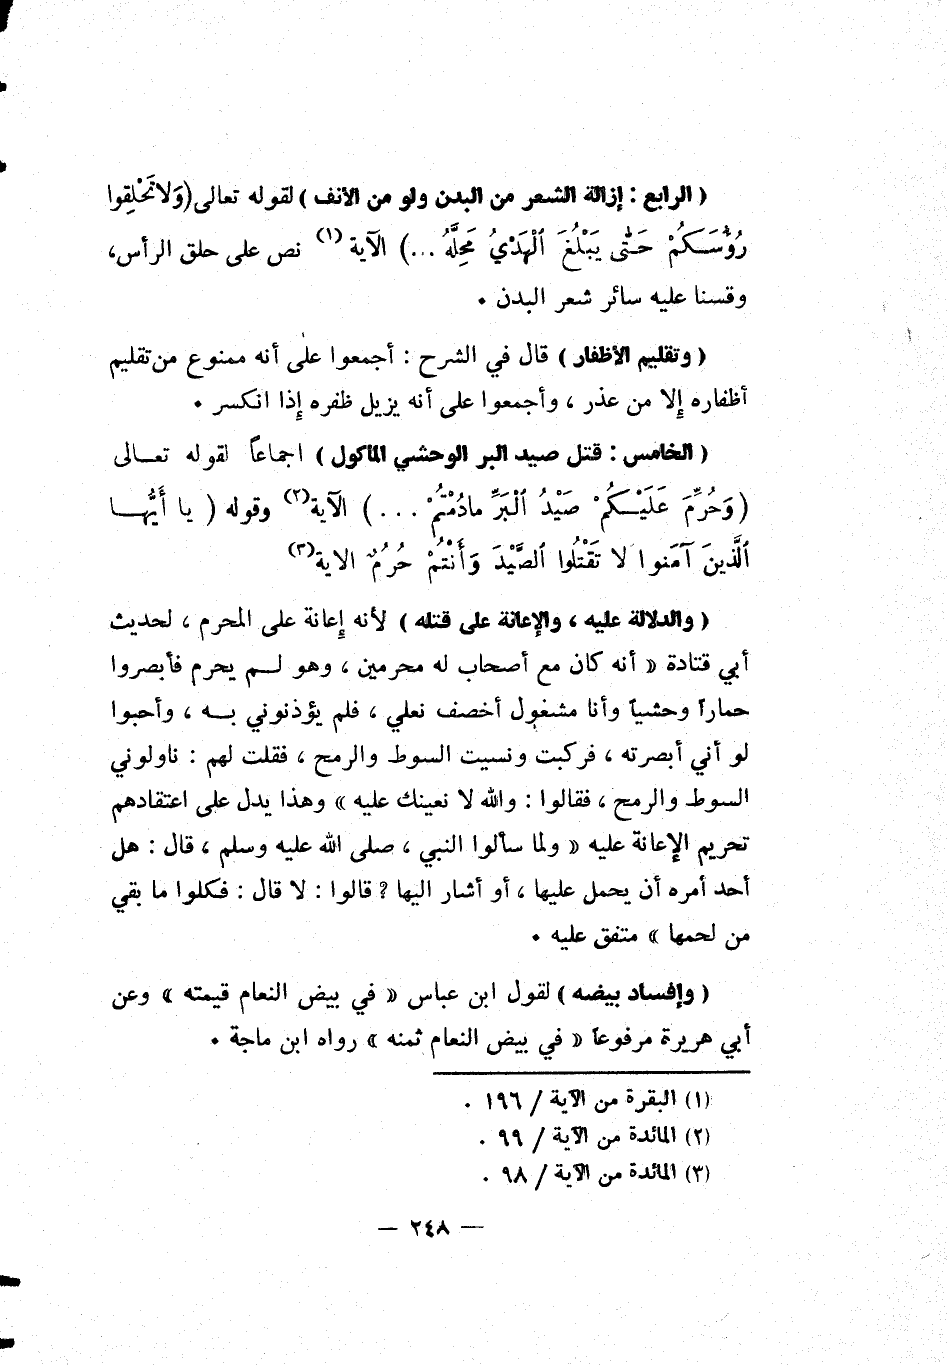 ( الرابع : إزالة الشعر من البدن ولو من الأنف ) لقوله تعالى (وَلا تَحْلِقوا
رُؤُسَكُمْ حَتّٰى يَبْلُغَ ٱلْهَدْيُ مَحِلَّهُ ...) الآية (١) نص على حلق الرأس،
وقسنا عليه سائر شعر البدن .
( وتقليم الأظفار ) قال في الشرح : أجمعوا على أنه ممنوع من تقليم
أظفاره إلا من عذر ، وأجمعوا على أنه يزيل ظفره إذا انكسر .
( الخامس : قتل صيد البر الوحشي المأكول ) اجماعاً لقوله تعالى
( وَحُرِّمَ عَلَيْكُمْ صَيْدُ ٱلْبَرِّ مادُمْتُمْ ... ) الآية (٢) وقوله ( يا أَيُّها
ٱلَّذينَ آمَنوا لا تَقْتُلُوا ٱلصَّيْدَ وَأَنْتُمْ حُرُمٌ الاية (٣)
( والدلالة عليه ، والإعانة على قتله ) لأنه إعانة على المحرم ، لحديث
أبي قتادة « أنه كان مع أصحاب له محرمين ، وهو لم يحرم فأبصروا
حماراً وحشياً وأنا مشغول أخصف نعلي ، فلم يؤذنوني به ، وأحبوا
لو أني أبصرته ، فركبت ونسيت السوط والرمح ، فقلت لهم : ناولوني
السوط والرمح ، فقالوا : والله لا نعينك عليه » وهذا يدل على اعتقادهم
تحريم الإعانة عليه « ولما سألوا النبي ، صلى الله عليه وسلم ، قال : هل
أحد أمره أن يحمل عليها ، أو أشار اليها ? قالوا : لا قال : فكلوا ما بقي
من لحمها » متفق عليه .
( وإفساد بيضه ) لقول ابن عباس « في بيض النعام قيمته » وعن
أبي هريرة مرفوعاً « في بيض النعام ثمنه » رواه ابن ماجة .
(١) البقرة من الآية / ١٩٦ .
(٢) المائدة من الآية / ٩٩ .
(٣) المائدة من الآية / ٩٨ .
— ٢٤٨ —